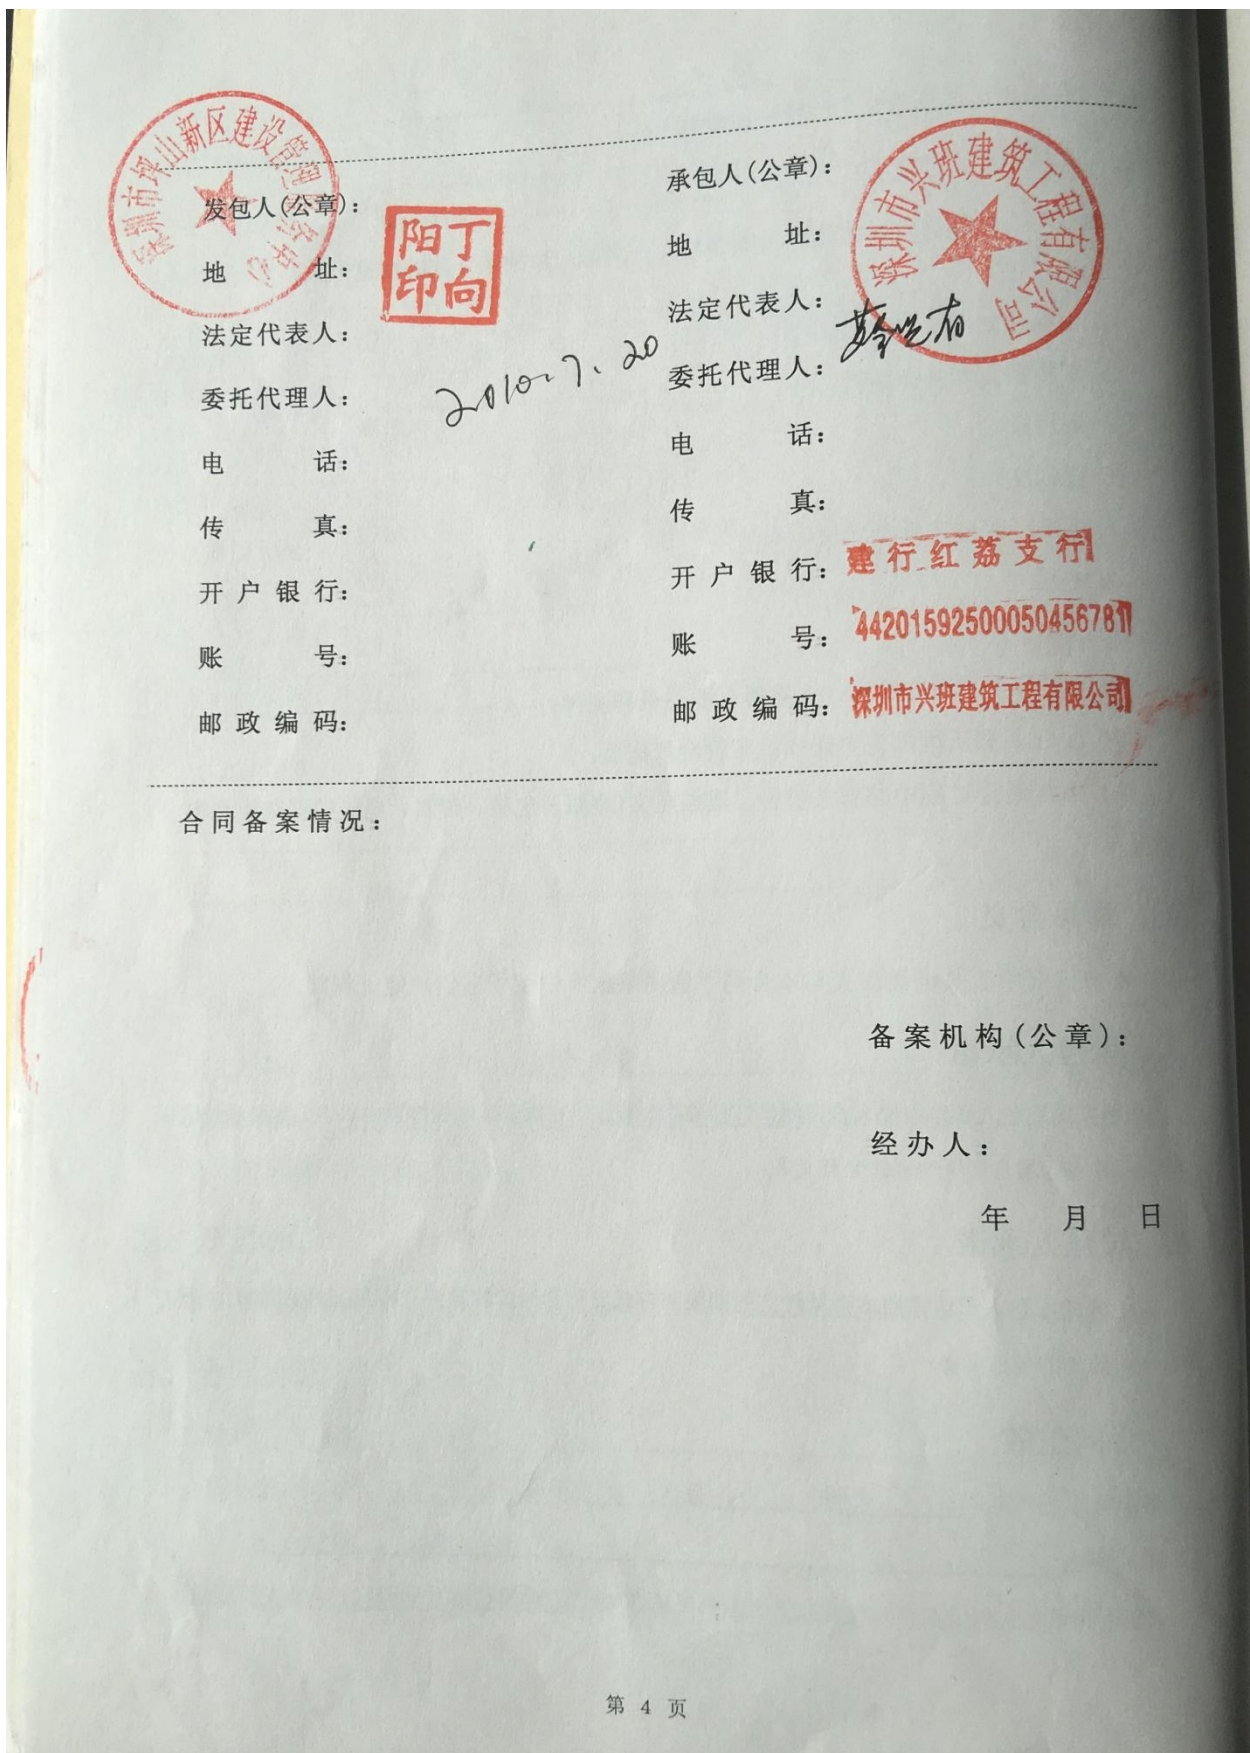 深圳市坪山新区建设管理服务中心
发包人(公章):
地 址:
丁向
阳印
法定代表人:
委托代理人:
2010.7.20
电 话:
传 真:
开户银行:
账 号:
邮政编码:
承包人(公章):
深圳市兴班建筑工程有限公司
地 址:
法定代表人:
委托代理人:
电 话:
传 真:
开户银行: 建行红荔支行
账 号: 44201592500050456781
邮政编码: 深圳市兴班建筑工程有限公司
合同备案情况:
备案机构(公章):
经办人:
年 月 日
第 4 页